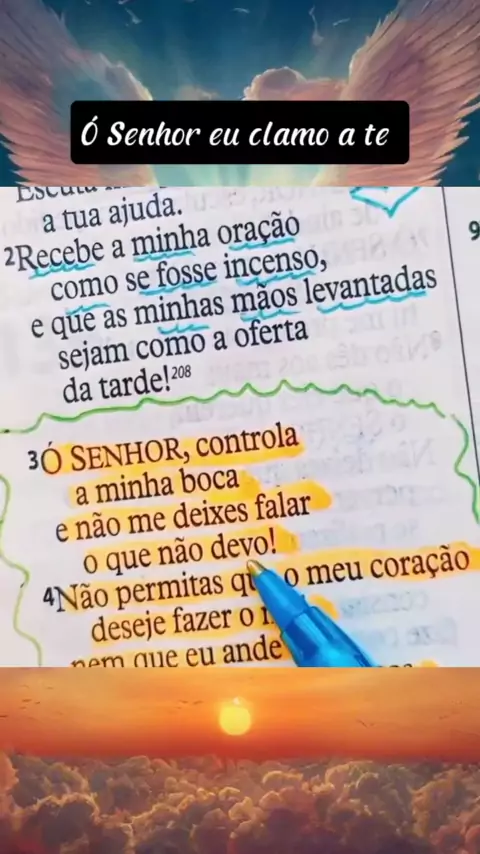 Ó Senhor eu clamo a te
a tua ajuda.
2Recebe a minha oração
como se fosse incenso,
e que as minhas mãos levantadas
sejam como a oferta
da tarde!208
3Ó SENHOR, controla
a minha boca
e não me deixes falar
o que não devo!
4Não permitas o meu coração
deseje fazer o
nem que eu ande
9